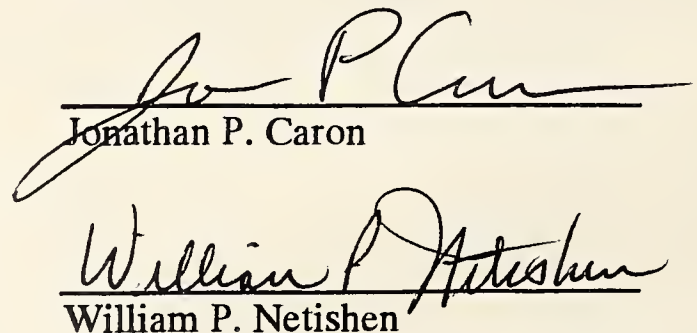 Jon P Caron
Jonathan P. Caron
William P Netishen
William P. Netishen